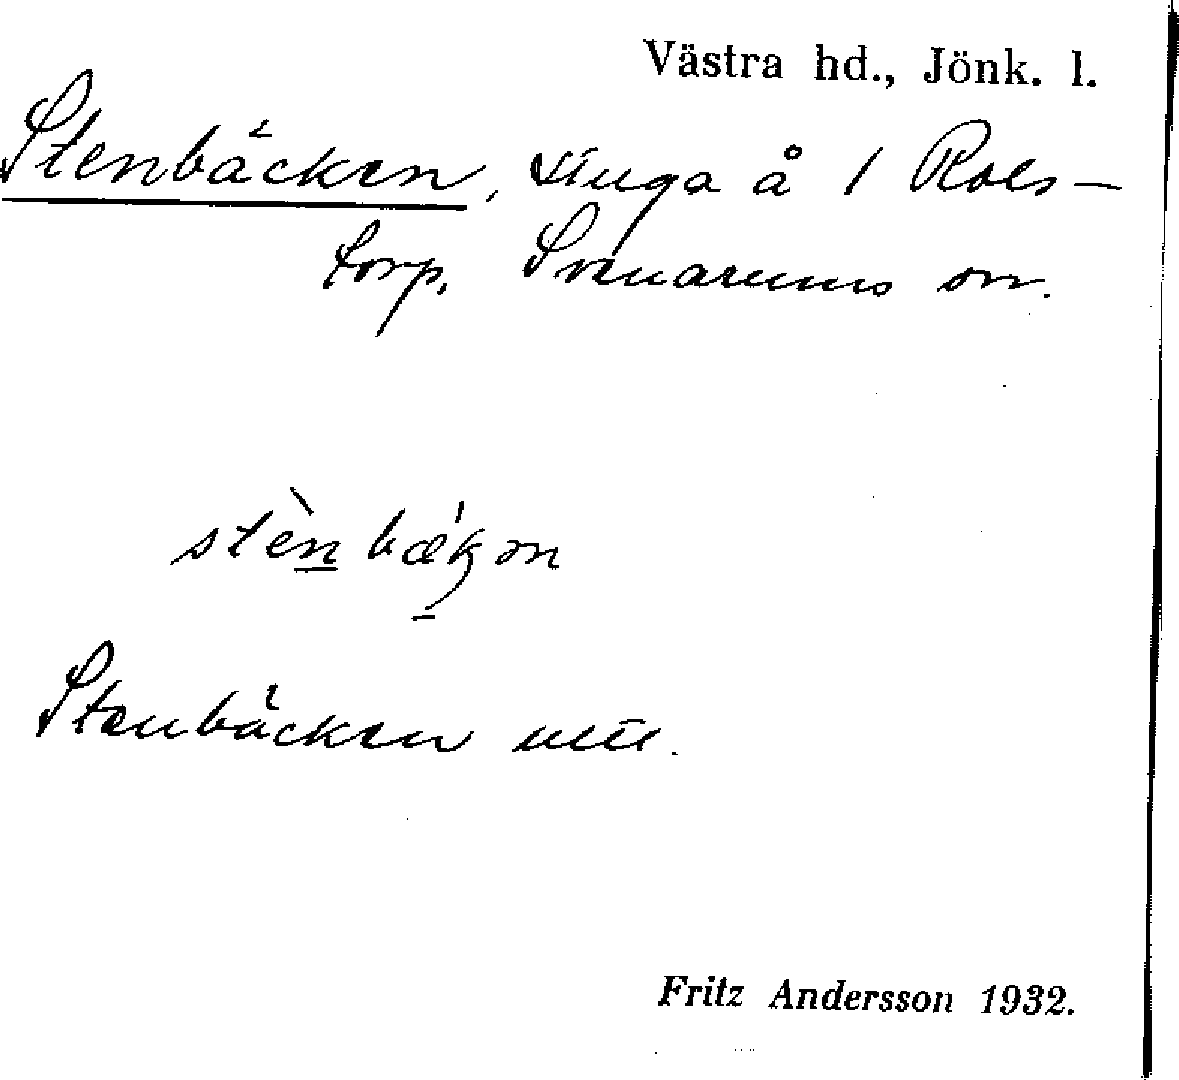 Västra hd., Jönk. l.
Stenbäcken, stuga å 1 Rols-
torp, Svenarums sn.
stèn bǽkən
Stenbäcken
Fritz Andersson 1932.